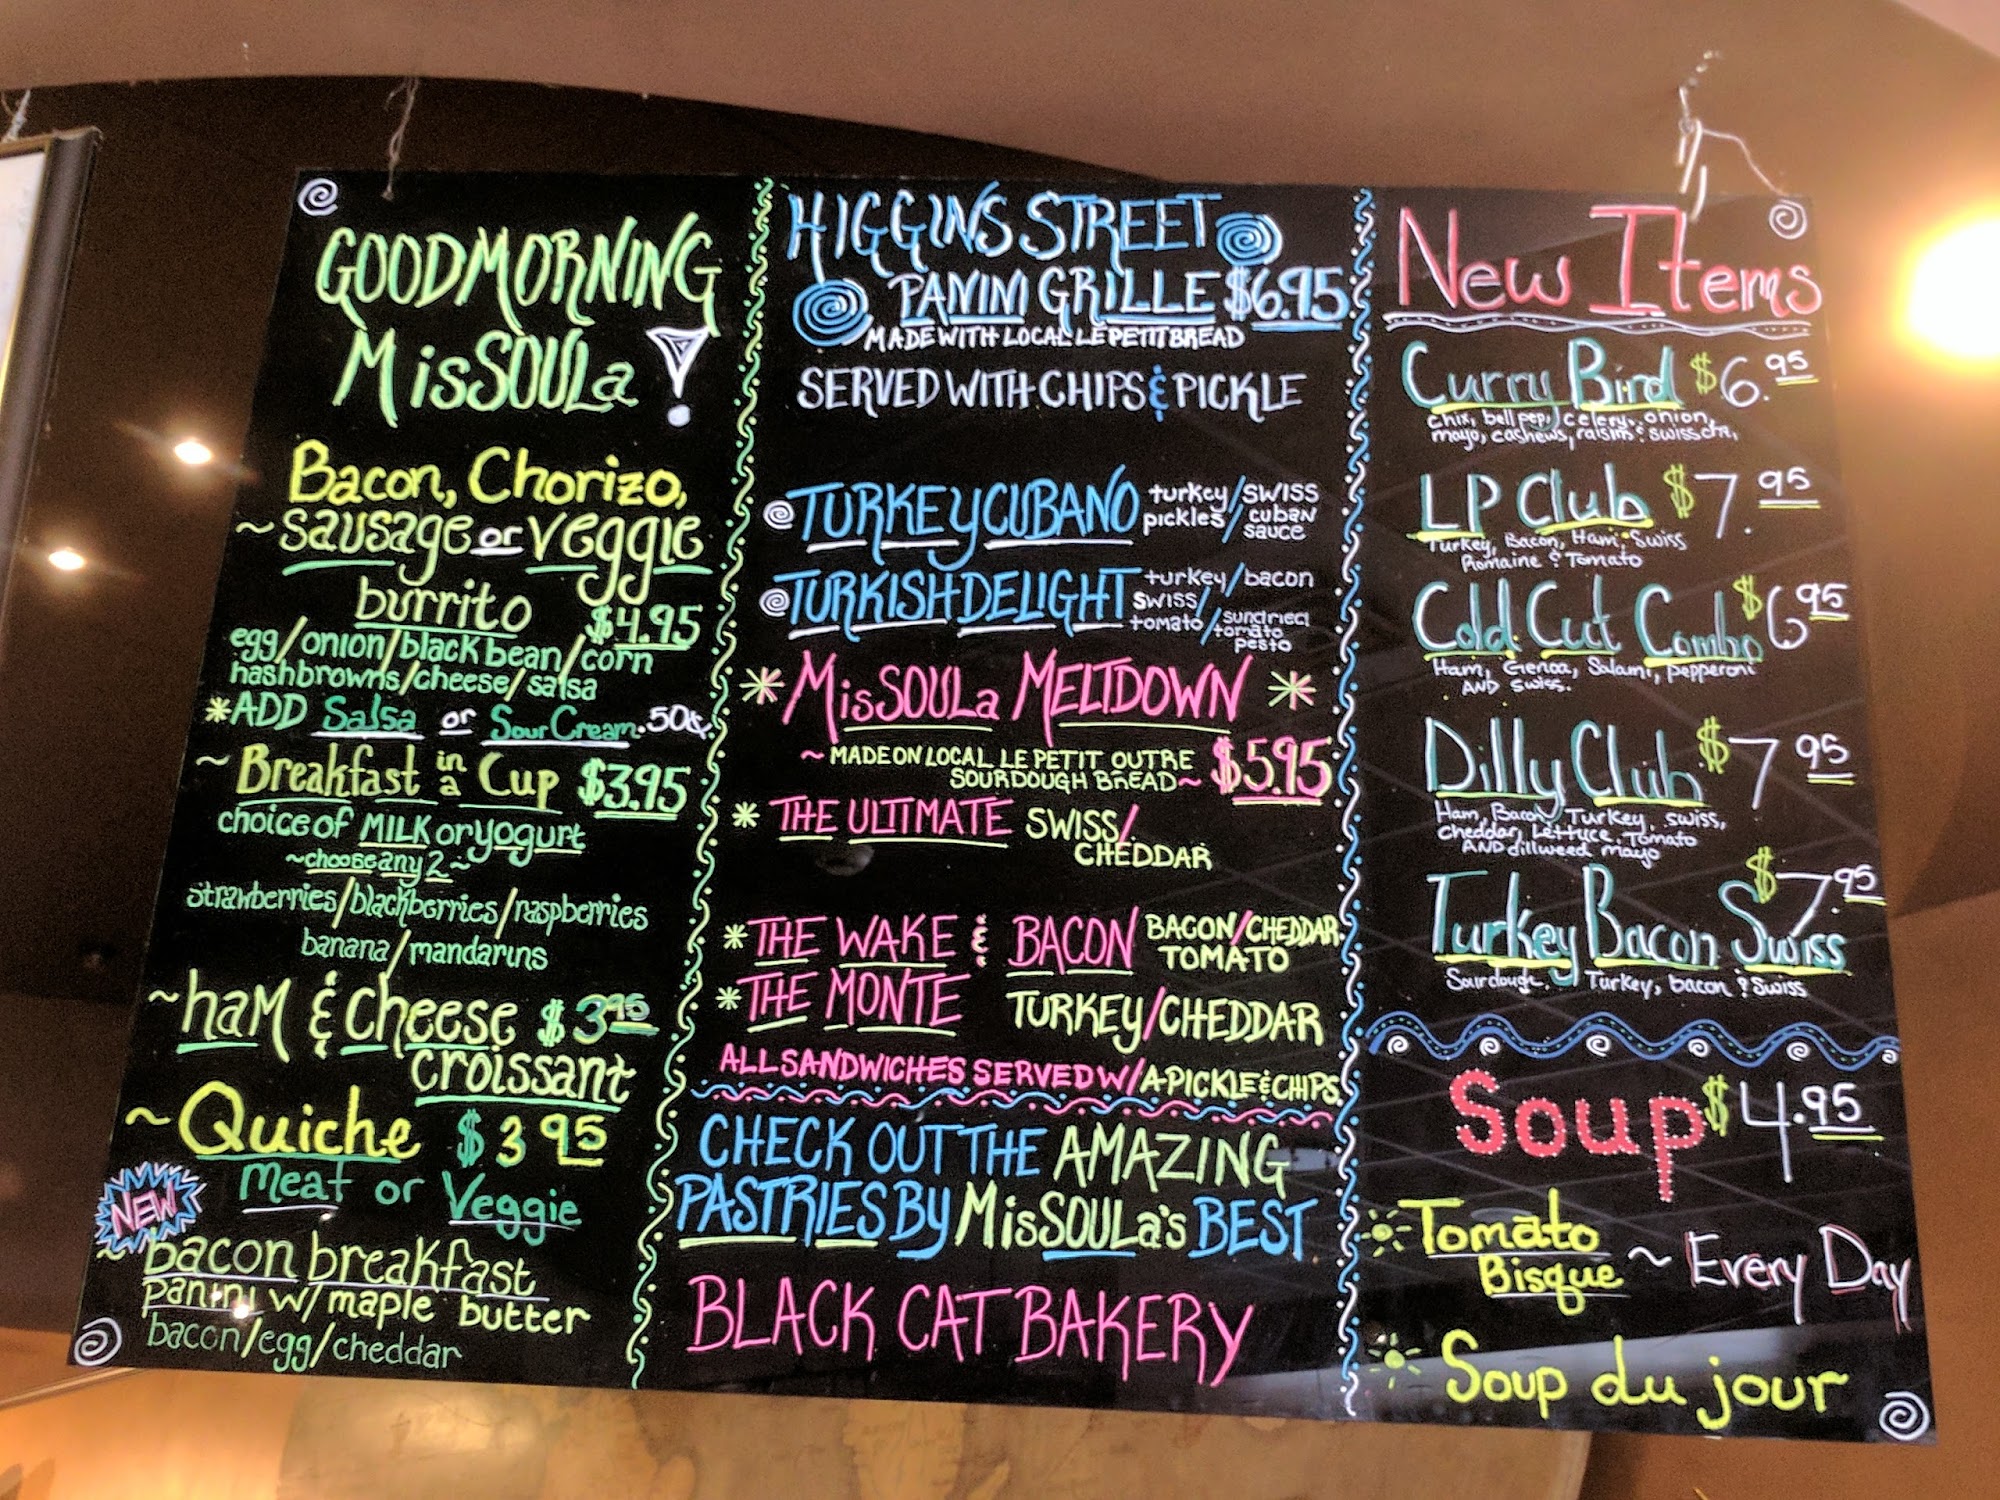 GOODMORNING
MisSOULa!
Bacon, Chorizo,
~sausage or veggie
burrito $4.95
egg/onion/black bean/corn
hashbrowns/cheese/salsa
*ADD Salsa or Sour Cream .50¢
~Breakfast in a Cup $3.95
choice of MILK or yogurt
~choose any 2~
strawberries/blackberries/raspberries
banana/mandarins
~haM & cheese $3.95
croissant
~Quiche $3.95
Meat or Veggie
NEW
~bacon breakfast
panini w/ maple butter
bacon/egg/cheddar
HIGGINS STREET
PANINI GRILLE $6.95
MADE WITH LOCAL LE PETIT BREAD
SERVED WITH CHIPS & PICKLE
TURKEY CUBANO turkey/SWISS
pickles/cuban
sauce
TURKISH DELIGHT turkey/bacon
SWISS/
tomato/sundried
tomato
pesto
*MisSOULa MELTDOWN*
~MADE ON LOCAL LE PETIT OUTRE $5.95
SOURDOUGH BREAD~
*THE ULTIMATE SWISS/
CHEDDAR
*THE WAKE & BACON BACON/CHEDDAR
TOMATO
*THE MONTE TURKEY/CHEDDAR
ALL SANDWICHES SERVED W/ A PICKLE & CHIPS
CHECK OUT THE AMAZING
PASTRIES BY MisSOULa's BEST
BLACK CAT BAKERY
New Items
Curry Bird $6.95
chix, bell pep, celery, onion,
mayo, cashews, raisins & swiss
LP Club $7.95
Turkey, Bacon, Ham, Swiss
Romaine & Tomato
Cold Cut Combo $6.95
Ham, Genoa, Salami, pepperoni
AND Swiss.
Dilly Club $7.95
Ham, Bacon, Turkey, swiss,
Cheddar, Lettuce, Tomato
AND dillweed mayo
Turkey Bacon Swiss $7.95
Sourdough, Turkey, bacon & Swiss
Soup $4.95
Tomato
Bisque ~ Every Day
Soup du jour